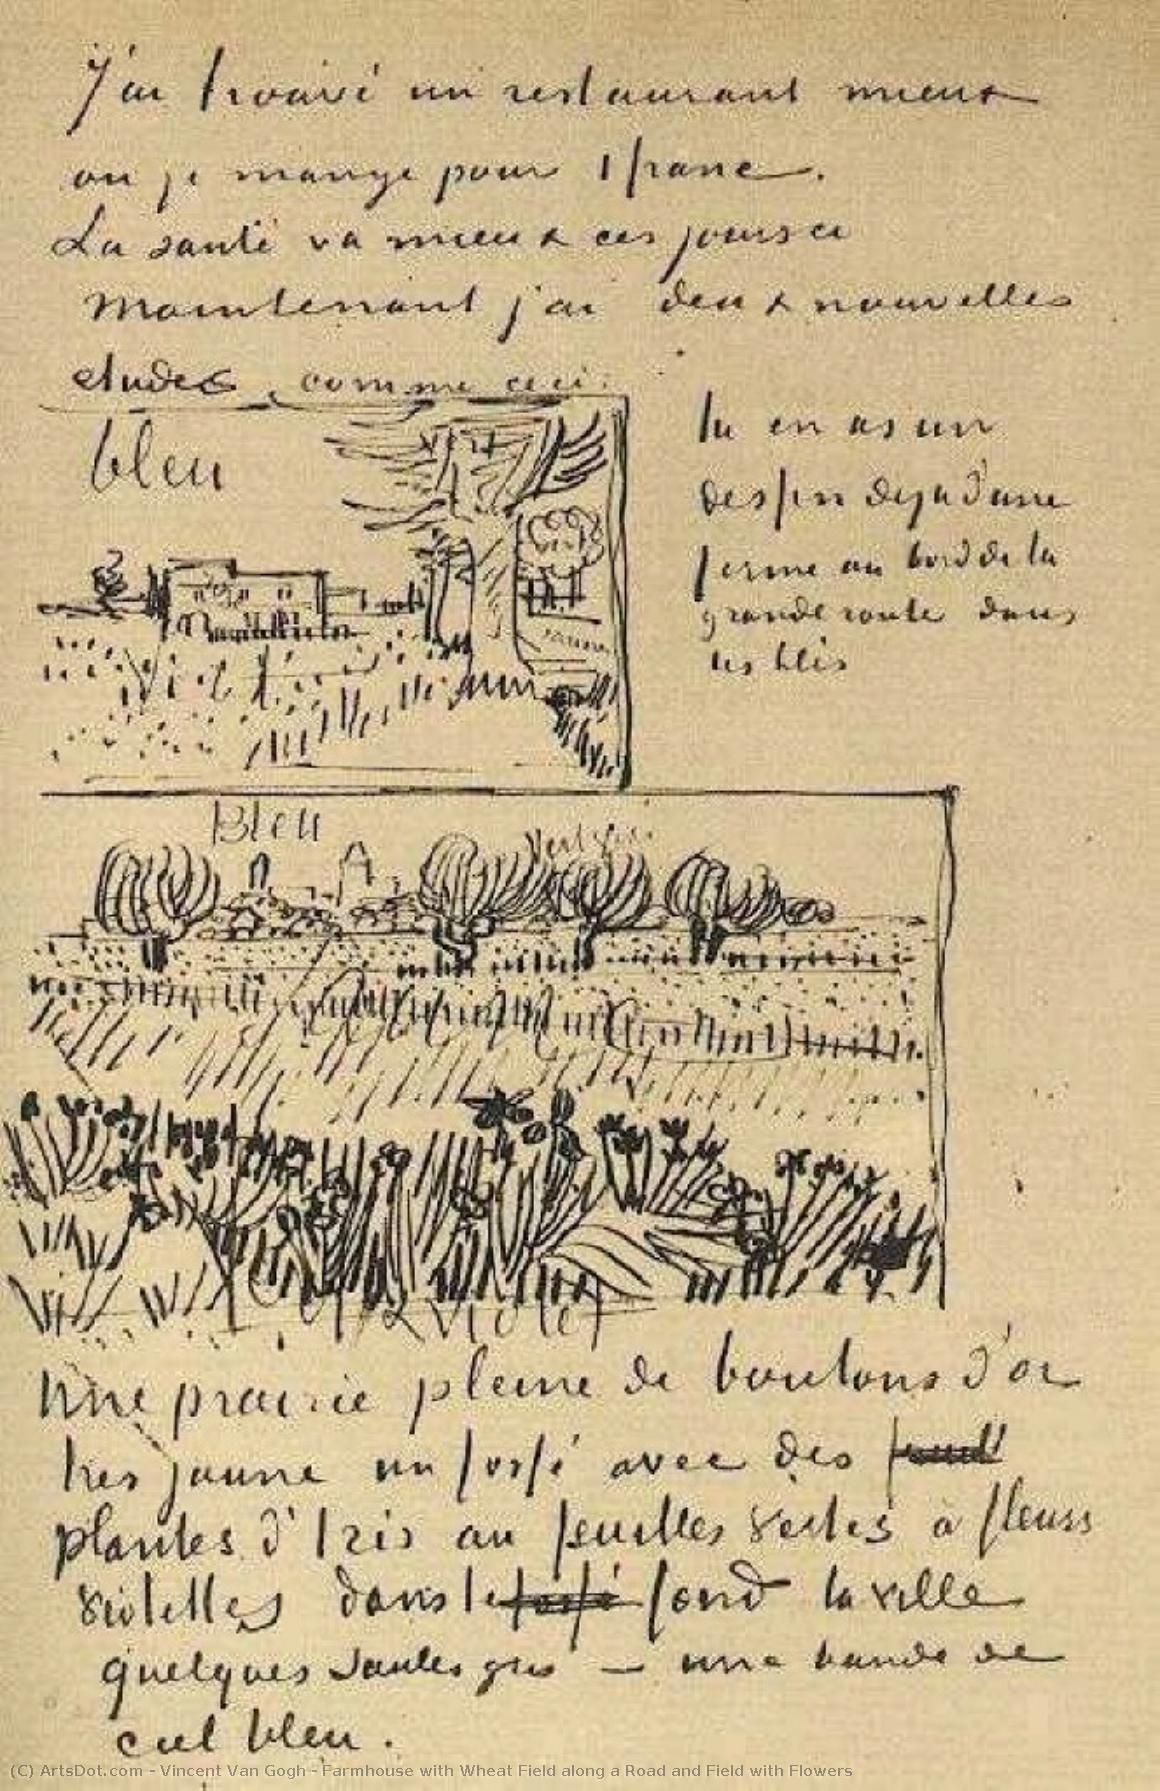 J'ai trouvé un restaurant mieux
ou je mange pour 1 franc.
La santé va mieux ces jours ci
Maintenant j'ai deux nouvelles
etudes comme ceci:
bleu
tu en as un
dessin deja d'une
ferme au bord de la
grande route dans
les blés
Bleu
vert gris
violet
Une prairie pleine de boutons d'or
tres jaune un fossé avec des
plantes d'Iris au feuilles vertes à fleurs
violettes dans le fossé fond la ville
quelques saules gris – une bande de
ciel bleu.
(C) ArtsDot.com - Vincent Van Gogh - Farmhouse with Wheat Field along a Road and Field with Flowers